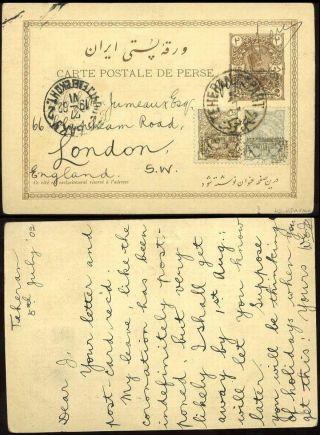 ورقه پستی ایران
CARTE POSTALE DE PERSE
Jumeaux Esq.
66 Road,
London,
S.W.
England.
Ce côté est exclusivement réservé à l'adresse
درین صفحه عنوان نوشته شود
TEHERAN
Teheran
July '02
Dear J,
Your letter and
post-card recd.
My leave, like the
coronation has been
indefinitely post-
poned. but very
likely I shall get
away by 1st Aug:
will let you know
later. I suppose
you will be thinking
of holidays when you
get this: Yours